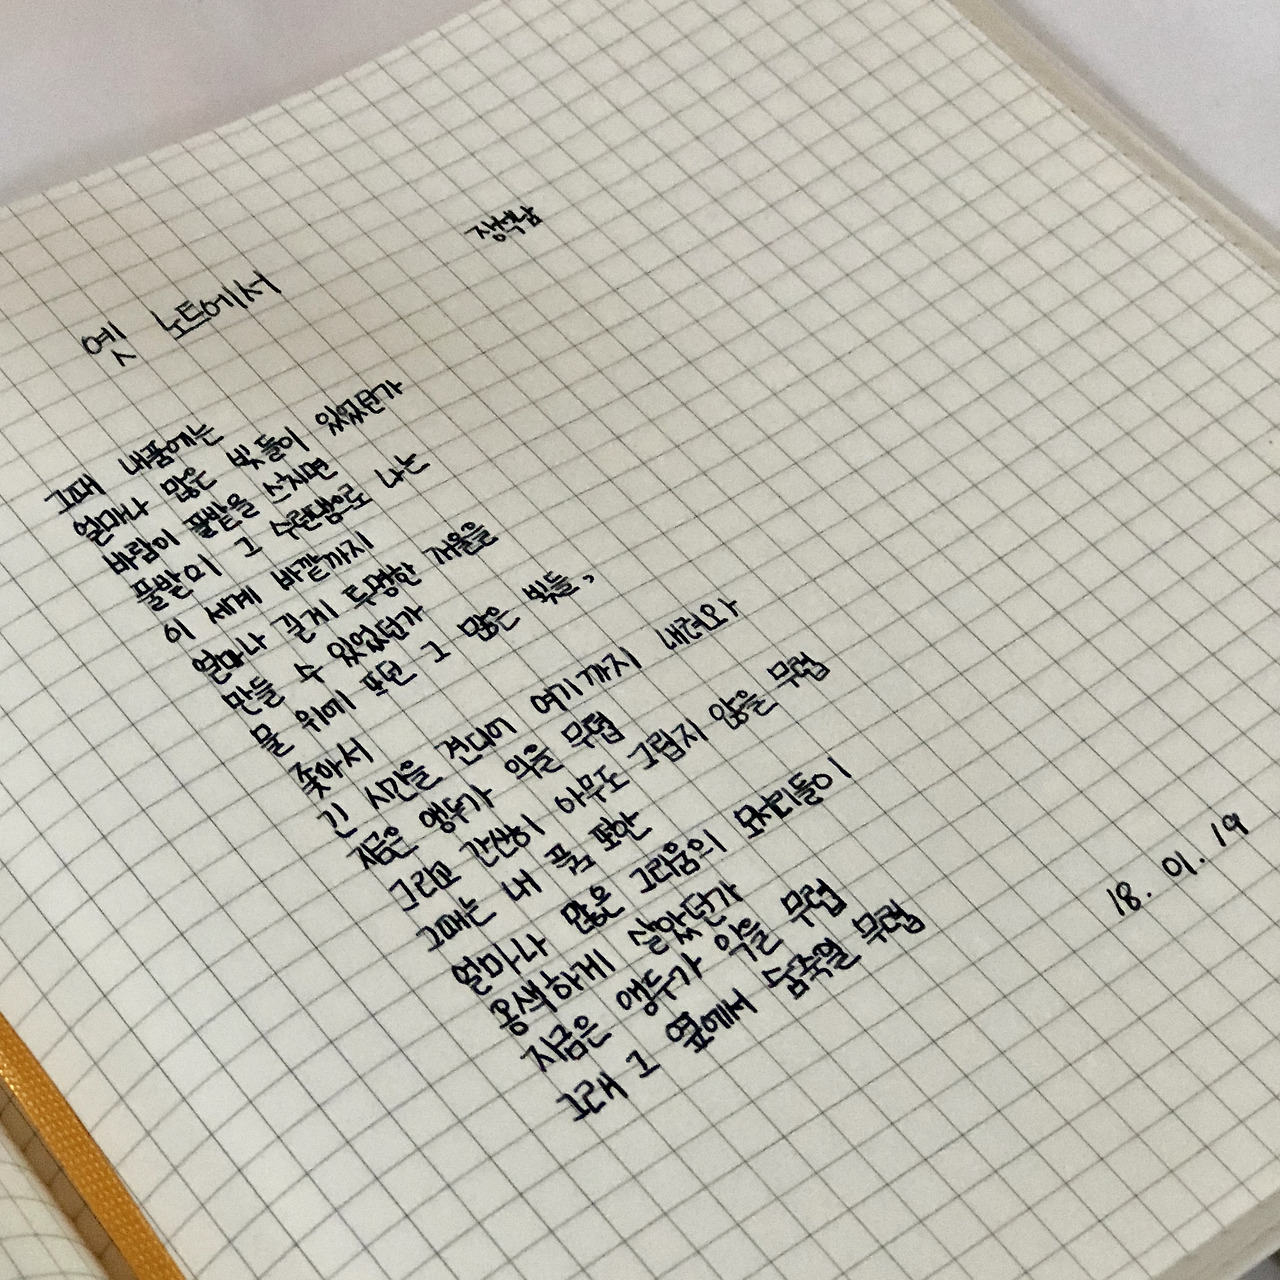 옛 노트에서
장석남
그때 내 품에는
얼마나 많은 빛들이 있었던가
바람이 풀밭을 스치면
풀밭의 그 수런댐으로 나는
이 세계 바깥까지
얼마나 길게 투명한 개울을
만들 수 있었던가
물 위에 뜨던 그 많은 빛들,
좇아서
긴 시간을 견디어 여기까지 내려와
지금은 앵두가 익을 무렵
그리고 간신히 아무도 그립지 않을 무렵
그때는 내 품에 또한
얼마나 많은 그리움의 모서리들이
옹색하게 살았던가
지금은 앵두가 익을 무렵
그래 그 옆에서 숨죽일 무렵
18. 01. 19